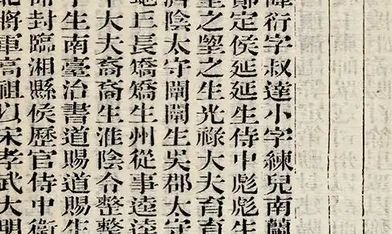 諱衍字叔達小字練兒南蘭
定侯延延生侍中彪彪生
望之望之生光祿大夫育育
濟陰太守闡闡生吳郡太守
丘長矯矯生州從事逵逵
太中大夫裔裔生淮陰令整整
子生南臺治書道賜道賜生
命封臨湘縣侯歷官侍中衛
北將軍高祖以宋孝武大明